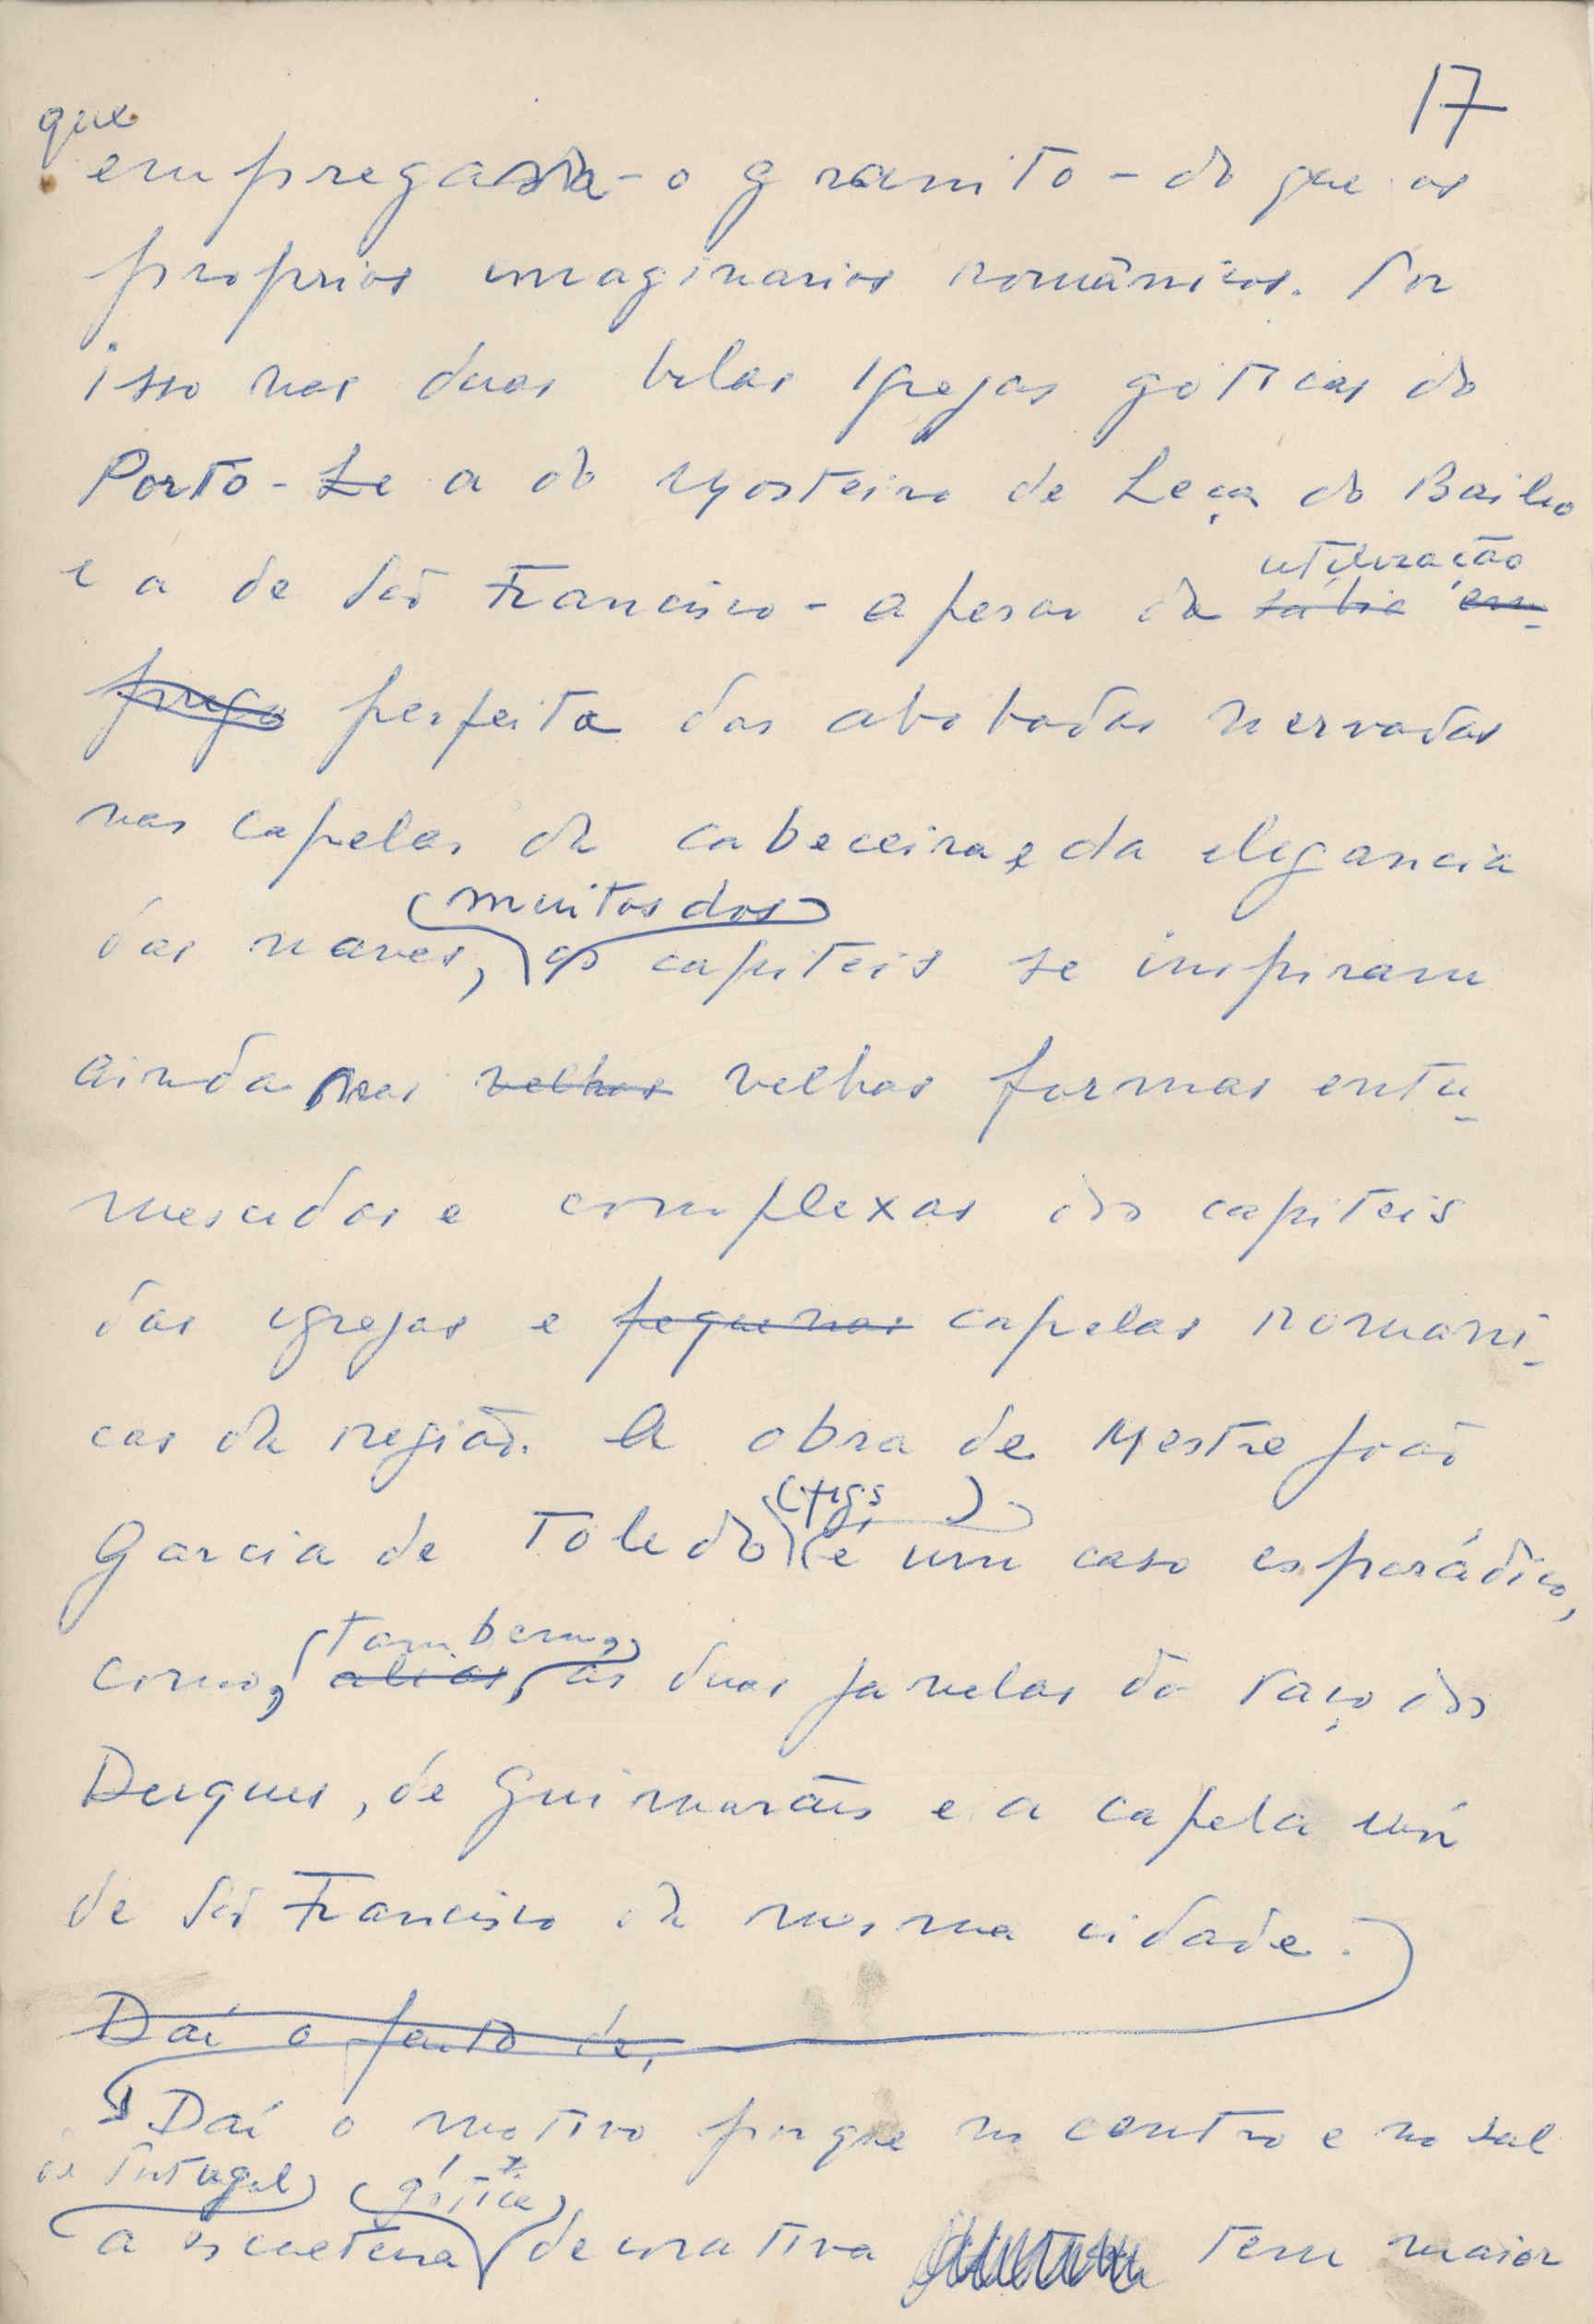 17
que
empregada - o granito - do que os
proprios imaginarios românicos. Por
isso nas duas belas igrejas goticas do
Porto - Le a do Mosteiro de Leça do Bailio
e a de São Francisco - apesar da sábia em-
utilização
prego perfeita das abobadas nervadas
nas capelas da cabeceira e da elegancia
muitos dos
das naves, os capiteis se inspiram
ainda nas velhas velhas formas entu-
mescidas e complexas dos capiteis
das igrejas e pequenas capelas romani-
cas da região. A obra de Mestre João
(figs )
Garcia de Toledo é um caso esporádico,
tambem,
como, aliás, as duas janelas do Paço dos
Duques, de Guimarães e a capela
de São Francisco da mesma cidade.
Daí o facto de,
Daí o motivo porque no centro e no sul
de Portugal gótica
a escultura decorativa tem maior